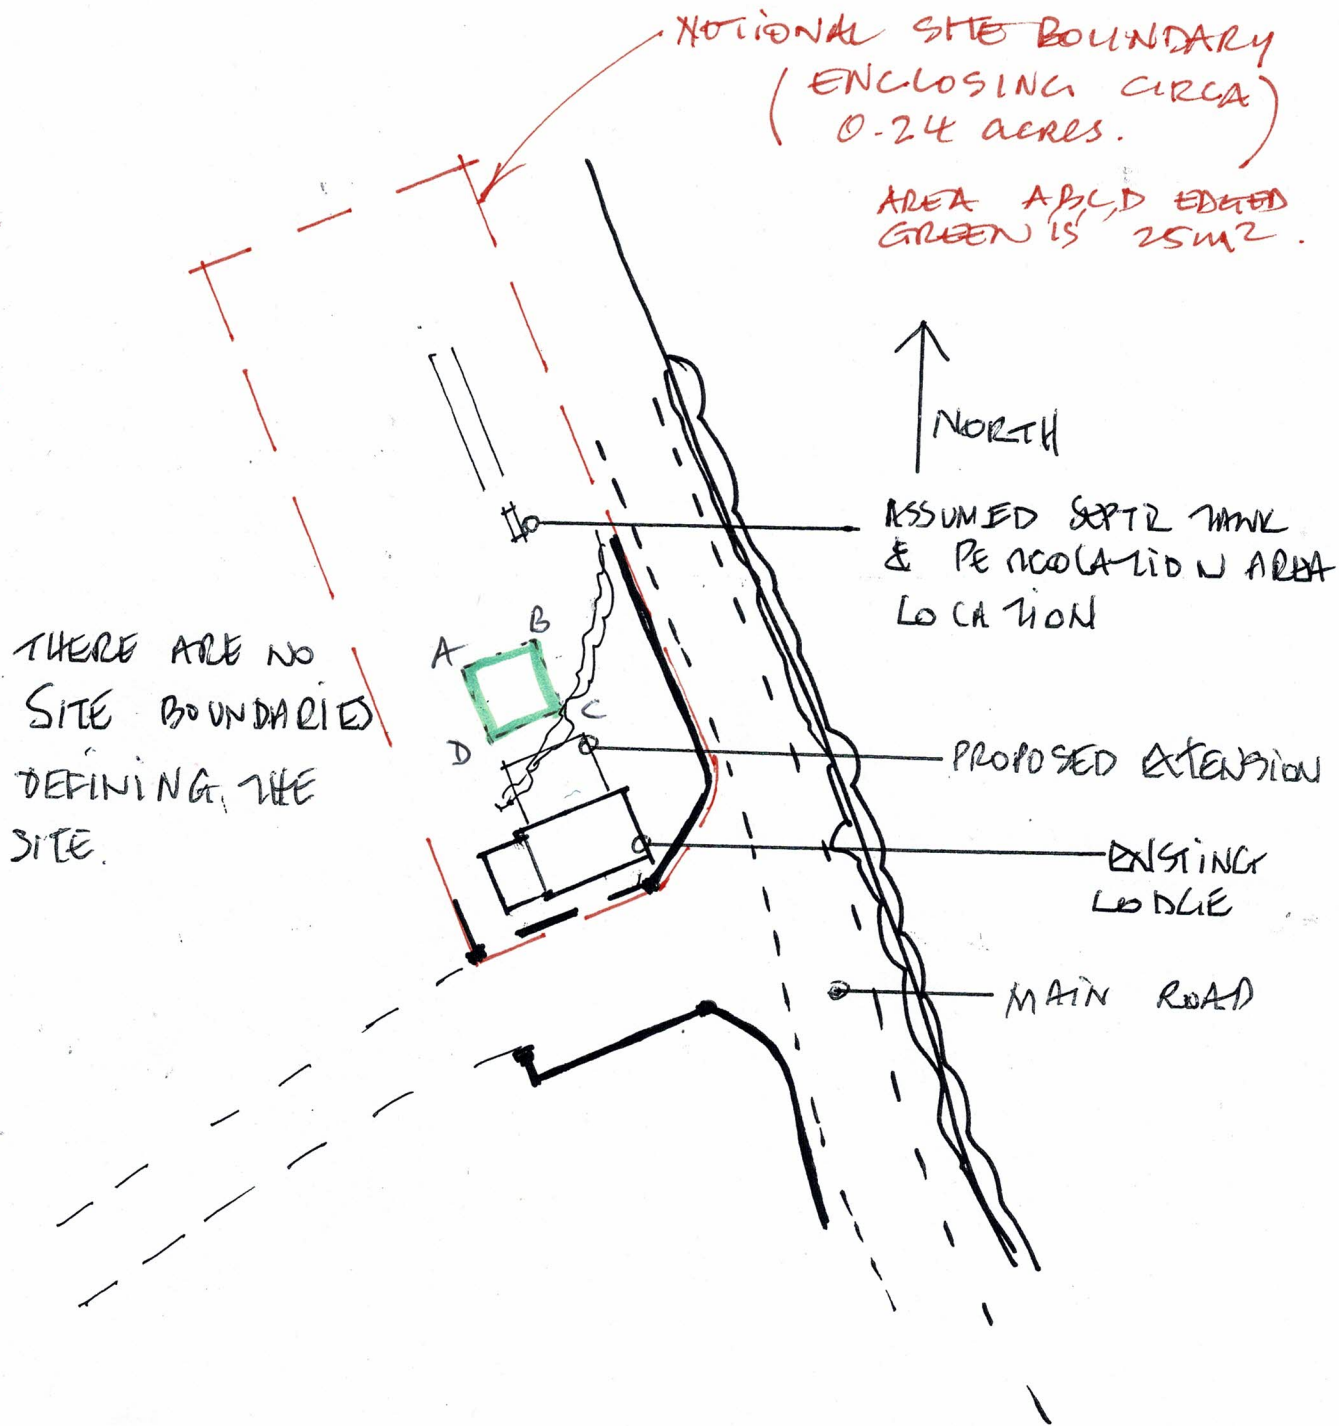 NOTIONAL SITE BOUNDARY
(ENCLOSING CIRCA)
0.24 acres.
AREA A,B,C,D EDGED
GREEN IS 25m2.
NORTH
ASSUMED SEPTIC TANK
& PERCOLATION AREA
LOCATION
THERE ARE NO
SITE BOUNDARIES
DEFINING THE
SITE.
A
B
C
D
PROPOSED EXTENSION
EXISTING
LODGE
MAIN ROAD